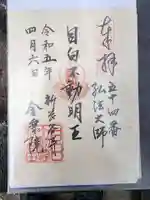 奉拝
五十四番
弘法大師
目白不動明王
新長谷寺
金乗院
令和五年
四月六日